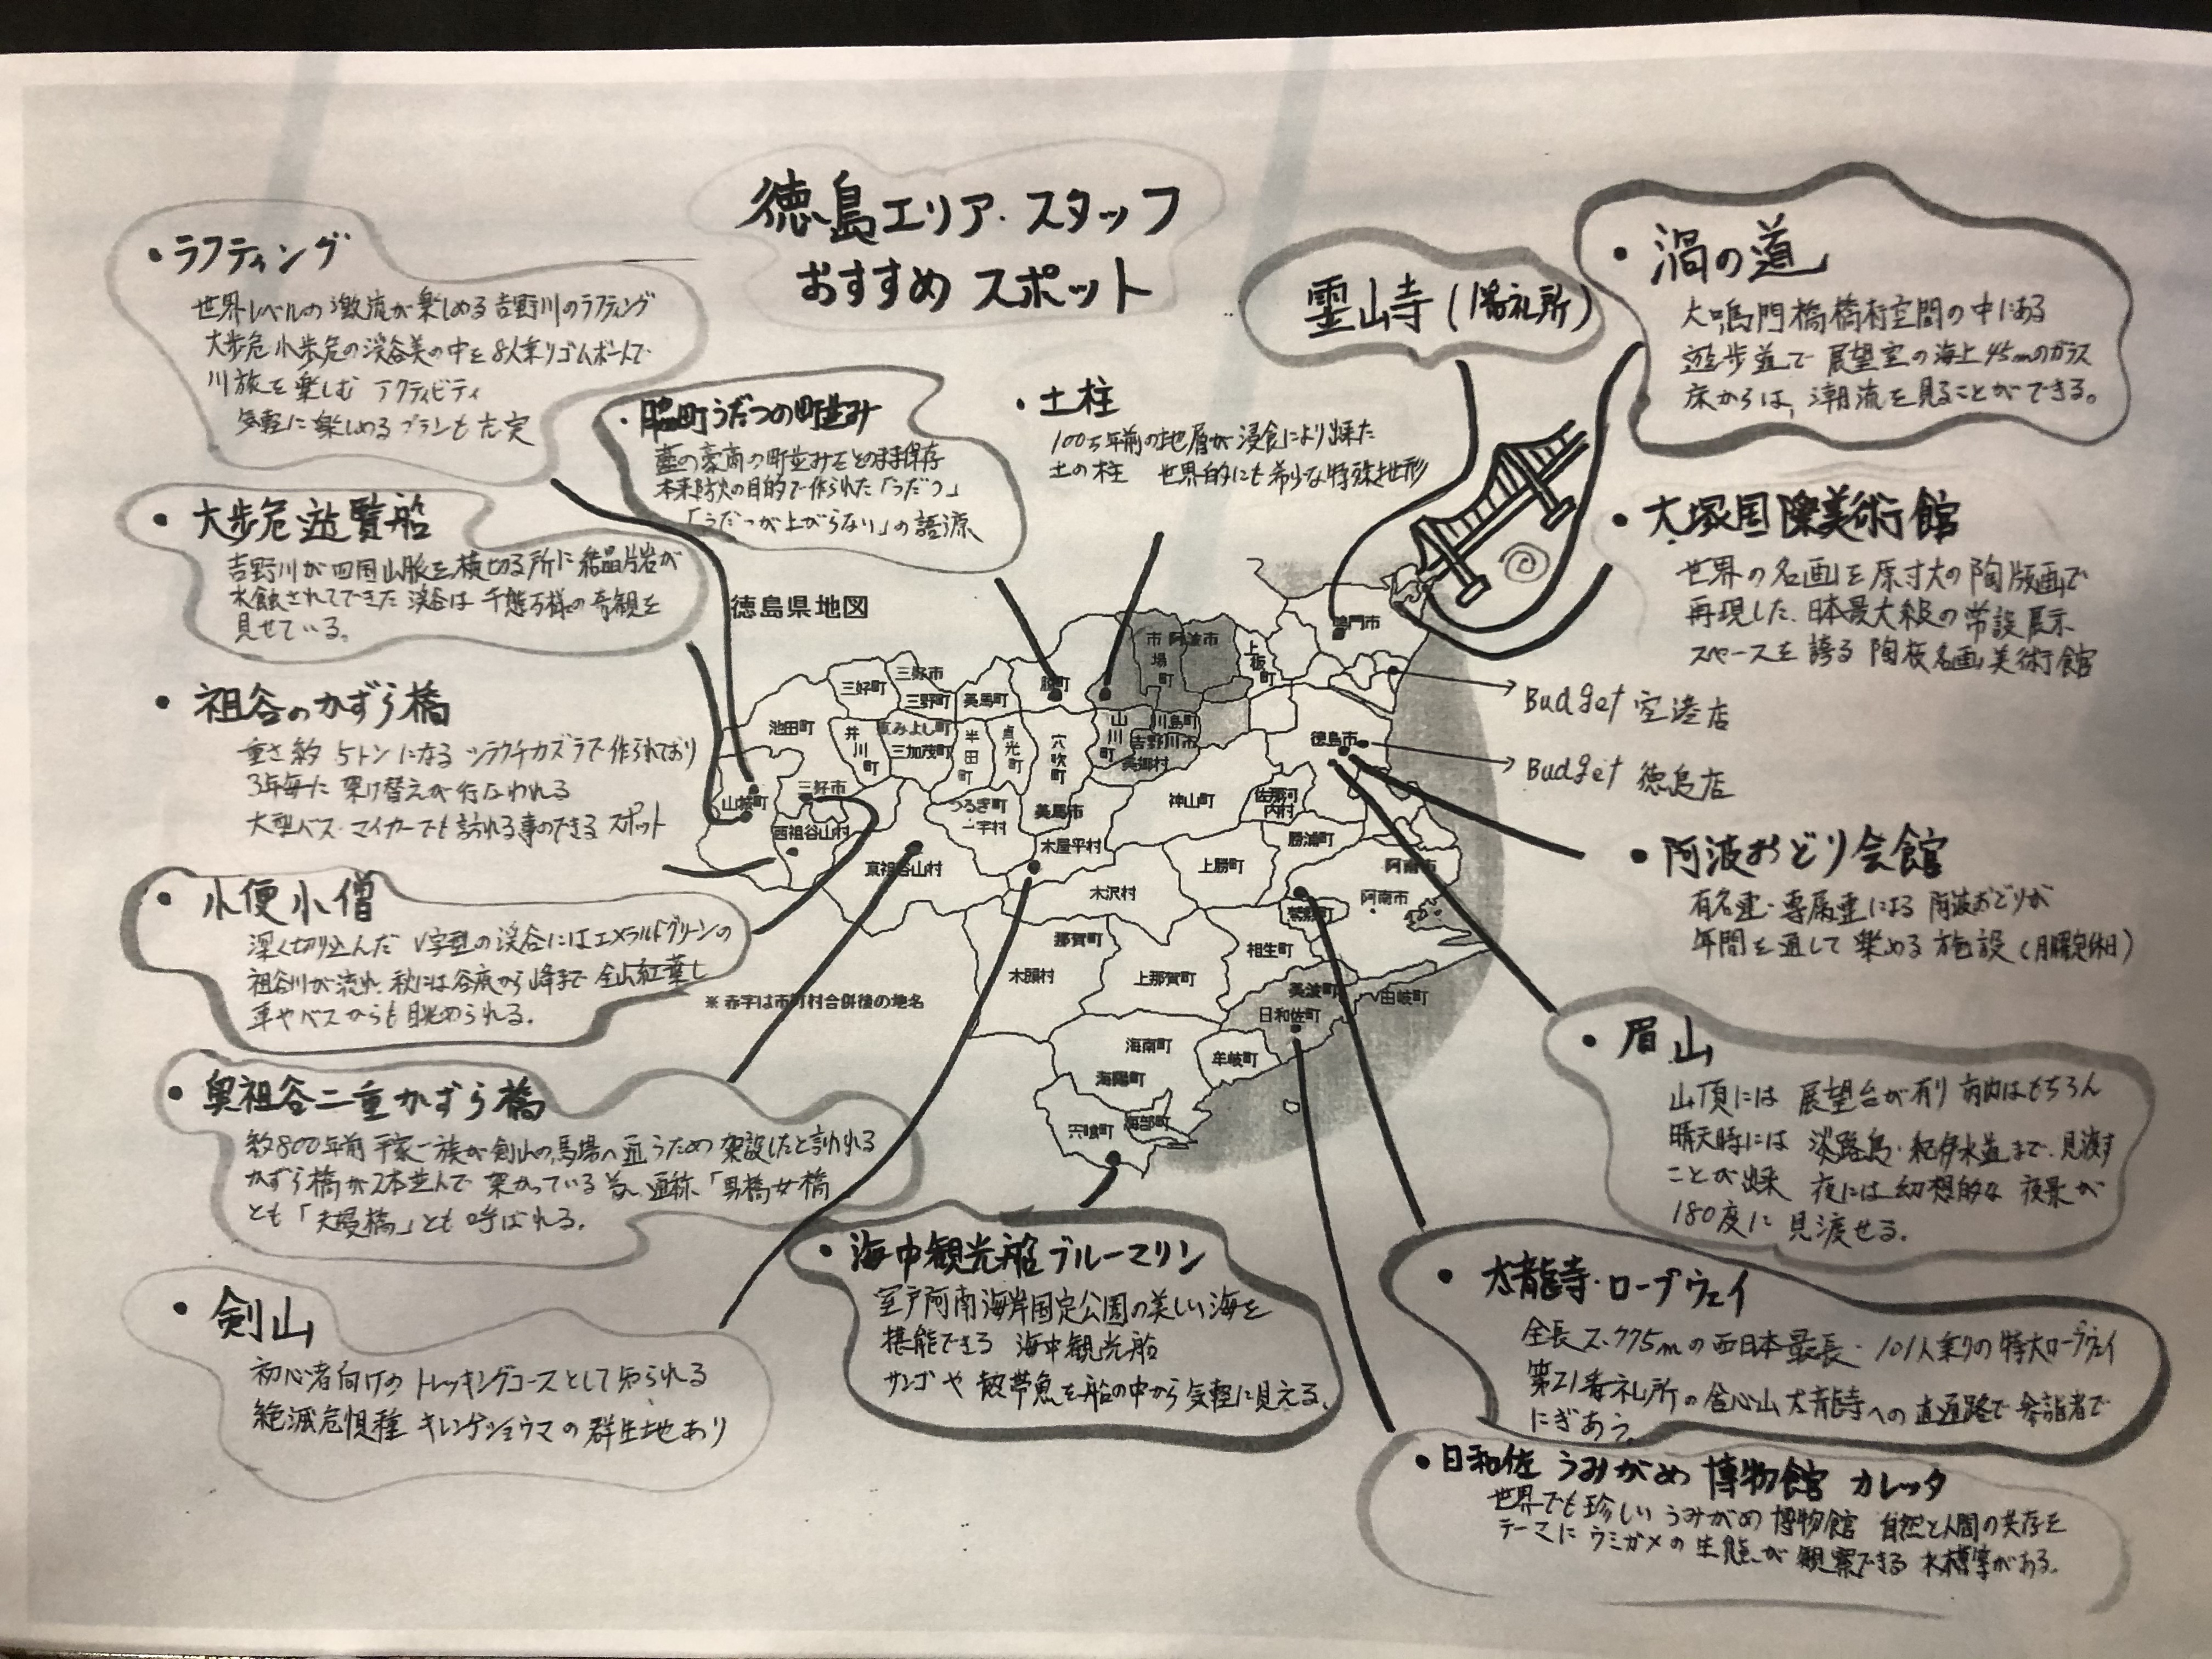 徳島エリア・スタッフ
おすすめ スポット
・ラフティング
世界レベルの激流が楽しめる吉野川のラフティング
大歩危小歩危の渓谷美の中を8人乗りゴムボートで
川旅を楽しむ アクティビティ
気軽に楽しめるプランも充実
・脇町うだつの町並み
藍の豪商の町並みをそのまま保存
本来防火の目的で作られた「うだつ」
「うだつが上がらない」の語源
・土柱
100万年前の地層が浸食により出来た
土の柱 世界的にも希少な特殊地形
霊山寺(1番札所)
・渦の道
大鳴門橋橋桁空間の中にある
遊歩道で展望室の海上45mのガラス
床からは、潮流を見ることができる。
・大塚国際美術館
世界の名画を原寸大の陶版画で
再現した、日本最大級の常設展示
スペースを誇る 陶板名画美術館
Budget 空港店
Budget 徳島店
・阿波おどり会館
有名連・専属連による阿波おどりが
年間を通して楽める施設(月曜定休日)
・眉山
山頂には 展望台が有り 市内はもちろん
晴天時には 淡路島・紀伊水道まで、見渡す
ことが出来 夜には幻想的な 夜景が
180度に 見渡せる。
・太龍寺・ロープウェイ
全長2.775mの西日本最長・101人乗りの特大ロープウェイ
第21番札所の舎心山太龍寺への直通路で参詣者で
にぎあう。
・日和佐 うみがめ 博物館 カレッタ
世界でも珍しい うみがめ 博物館 自然と人間の共存を
テーマに ウミガメの生態が 観察できる 水槽等がある。
・海中観光船ブルーマリン
室戸阿南海岸国定公園の美しい海を
堪能できる 海中観光船
サンゴや 熱帯魚を船の中から気軽に見える。
・大歩危遊覧船
吉野川が四国山脈を横切る所に結晶片岩が
水蝕されてできた渓谷は千態万様の奇観を
見せている。
・祖谷のかずら橋
重さ約5トンになるシラクチカズラで作られており
3年毎に架け替えが行なわれる
大型バス・マイカーでも訪れる事のできるスポット
・小便小僧
深く切り込んだ V字型の渓谷にはエメラルドグリーンの
祖谷川が流れ、秋には谷底から峰まで全山紅葉し
車やバスからも眺められる。
・奥祖谷二重かずら橋
約800年前平家一族が剣山の馬場へ通うため架設したと言われる
かずら橋が2本並んで架かっている為、通称、「男橋女橋
とも「夫婦橋」とも呼ばれる。
・剣山
初心者向けのトレッキングコースとして知られる
絶滅危惧種 キレンゲショウマの群生地あり
徳島県地図
鳴門市
市場町
阿波市
上板町
三好市
三好町
三野町
美馬町
脇町
池田町
井川町
東みよし町
三加茂町
半田町
貞光町
穴吹町
山川町
川島町
吉野川市
美郷村
徳島市
山城町
三好市
西祖谷山村
つるぎ町
一宇村
美馬市
木屋平村
神山町
佐那河内村
勝浦町
上勝町
東祖谷山村
木沢村
阿南市
阿南市
鷲敷町
那賀町
相生町
木頭村
上那賀町
美波町
由岐町
日和佐町
海南町
牟岐町
海陽町
海部町
宍喰町
※赤字は市町村合併後の地名